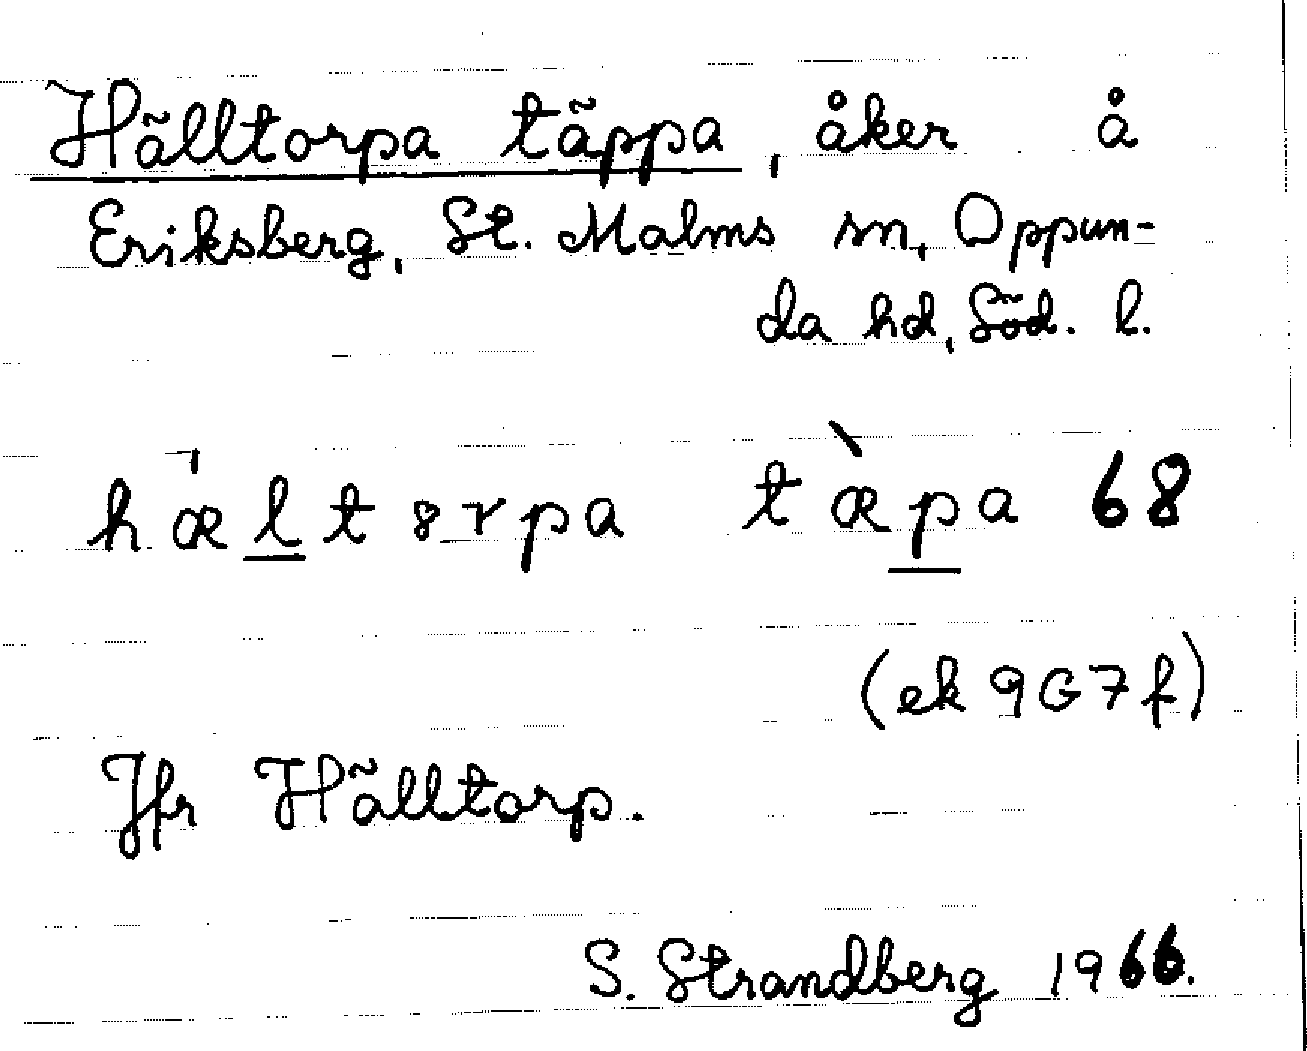 Hälltorpa täppa, åker å
Eriksberg, St. Malms sn, Oppun-
da hd, Söd. l.
hæltȣrpa tæ̀pa 68
(ek 9G7f)
Jfr Hälltorp.
S. Strandberg 1966.